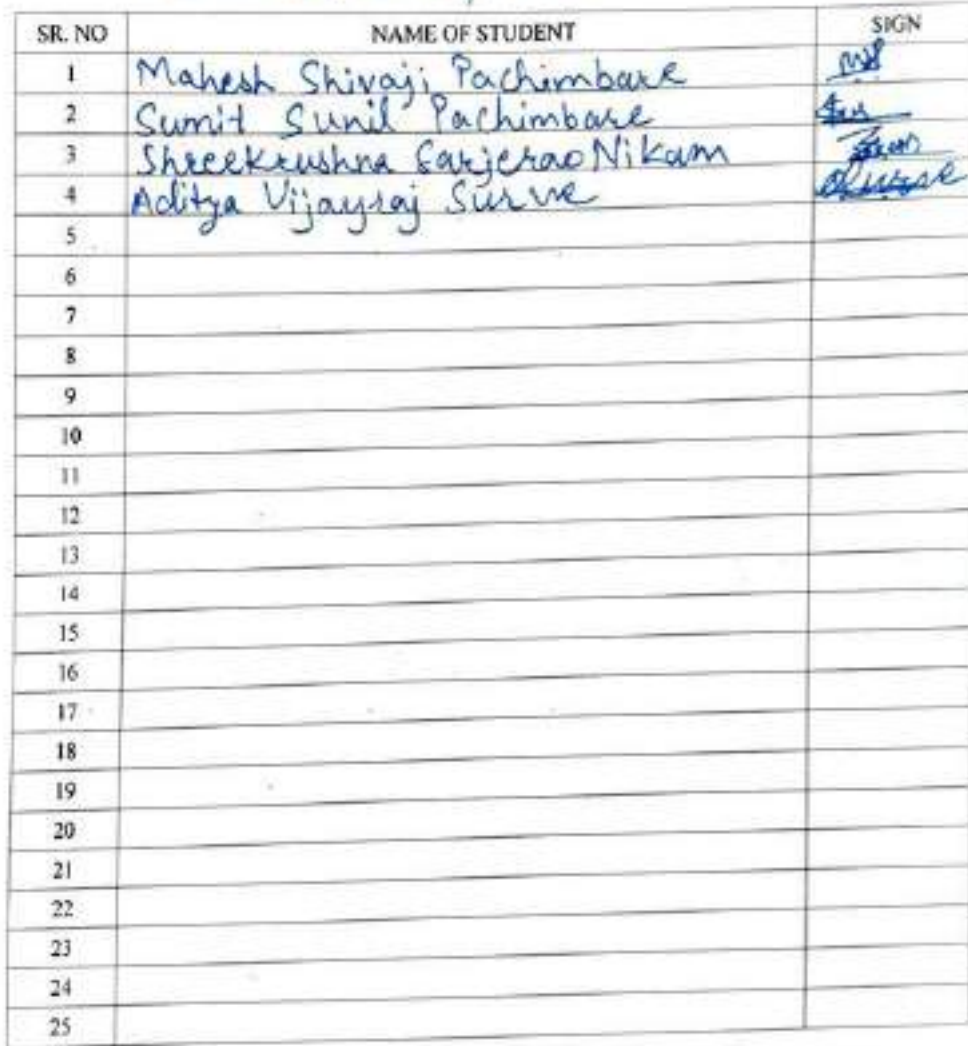 SR. NO NAME OF STUDENT SIGN
1 Mahesh Shivaji Pachimbare
2 Sumit Sunil Pachimbare
3 Shreekrushna Sarjerao Nikam
4 Aditya Vijayraj Surve
5
6
7
8
9
10
11
12
13
14
15
16
17
18
19
20
21
22
23
24
25